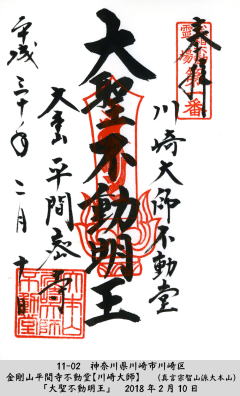 奉拝
第一番
霊場
川崎大師不動堂
大聖不動明王
大本山平間寺
平成三十年二月十日
大本山
川崎大師
不動堂
11-02 神奈川県川崎市川崎区
金剛山平間寺不動堂【川崎大師】 (真言宗智山派大本山)
「大聖不動明王」 2018年2月10日